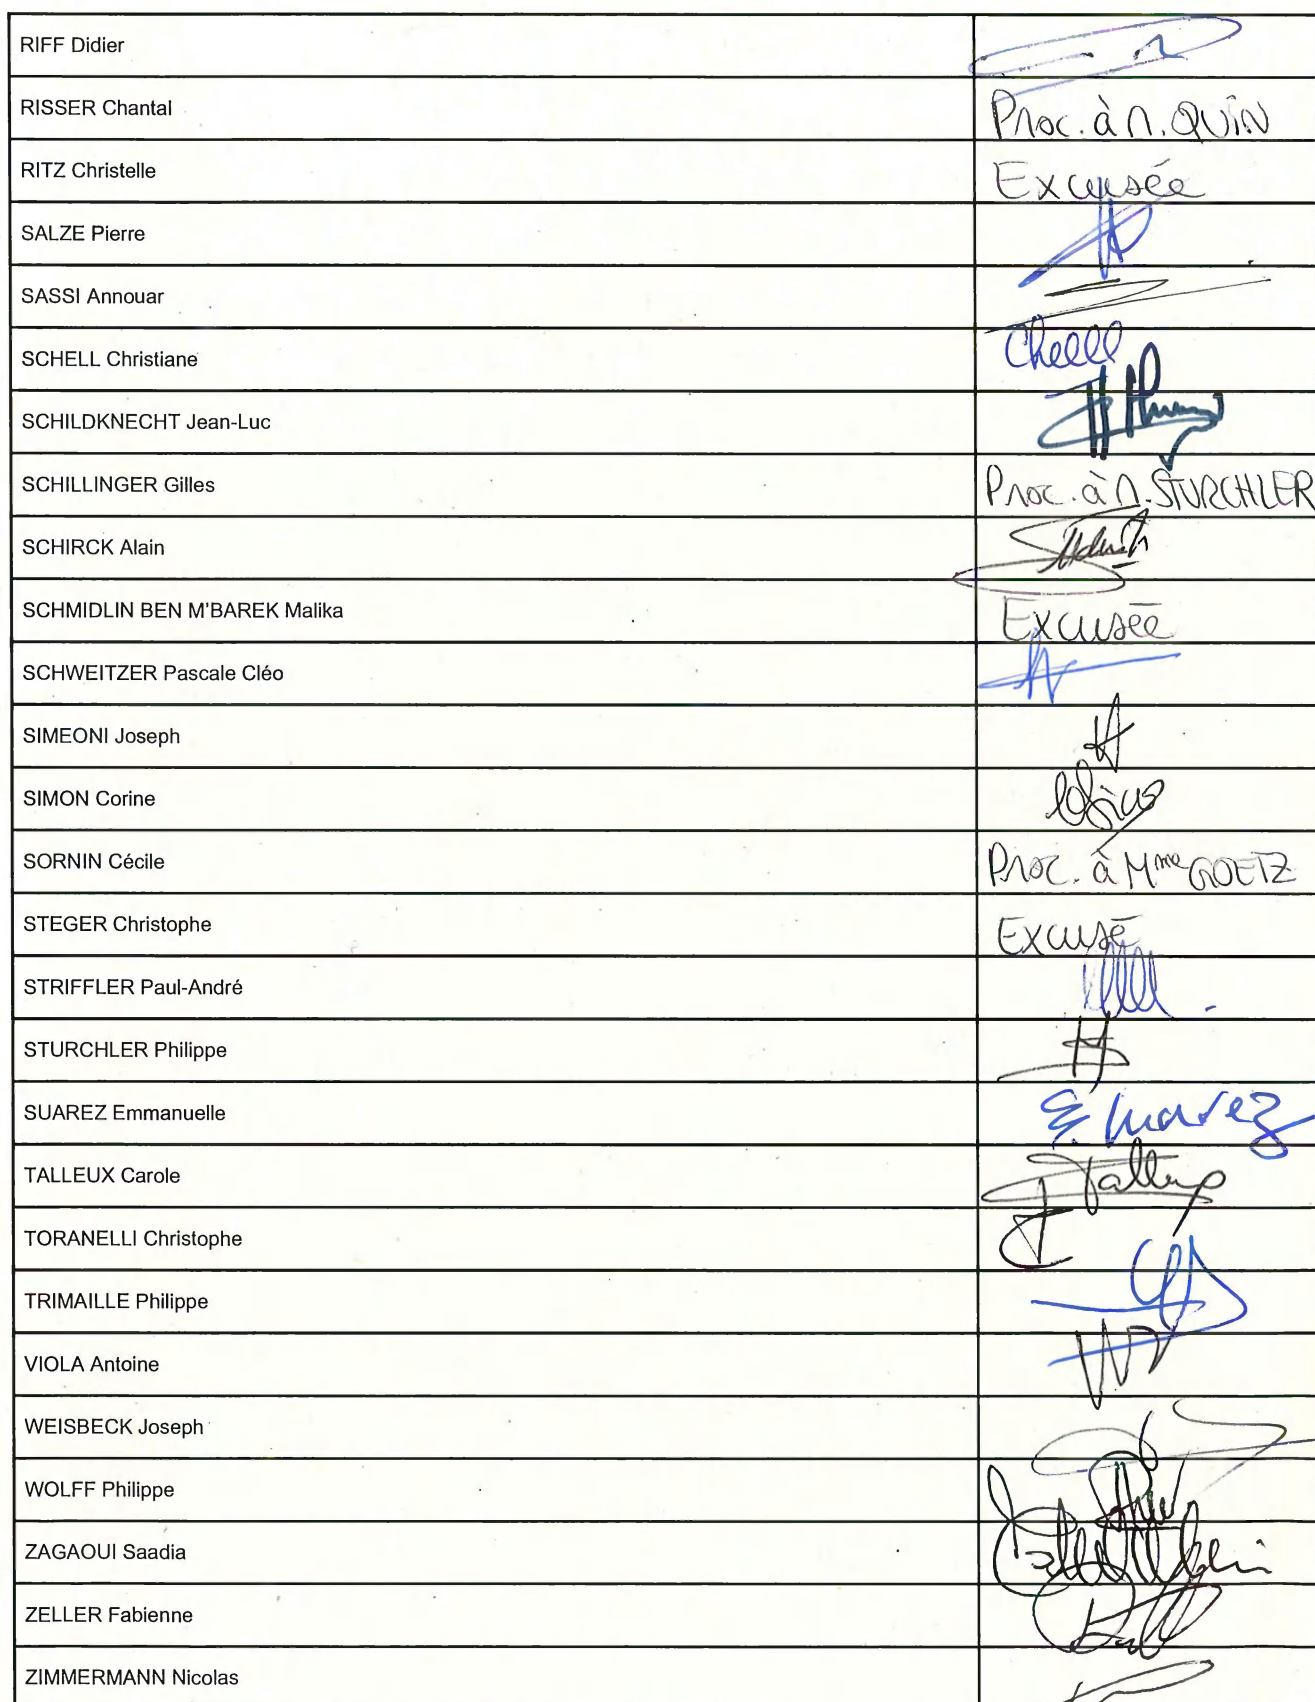 RIFF Didier
RISSER Chantal Proc. à M. QUIN
RITZ Christelle Excusée
SALZE Pierre
SASSI Annouar
SCHELL Christiane
SCHILDKNECHT Jean-Luc
SCHILLINGER Gilles Proc. à M. STURCHLER
SCHIRCK Alain
SCHMIDLIN BEN M'BAREK Malika Excusée
SCHWEITZER Pascale Cléo
SIMEONI Joseph
SIMON Corine
SORNIN Cécile Proc. à Mme GOETZ
STEGER Christophe Excusé
STRIFFLER Paul-André
STURCHLER Philippe
SUAREZ Emmanuelle E. Suarez
TALLEUX Carole
TORANELLI Christophe
TRIMAILLE Philippe
VIOLA Antoine
WEISBECK Joseph
WOLFF Philippe
ZAGAOUI Saadia
ZELLER Fabienne
ZIMMERMANN Nicolas